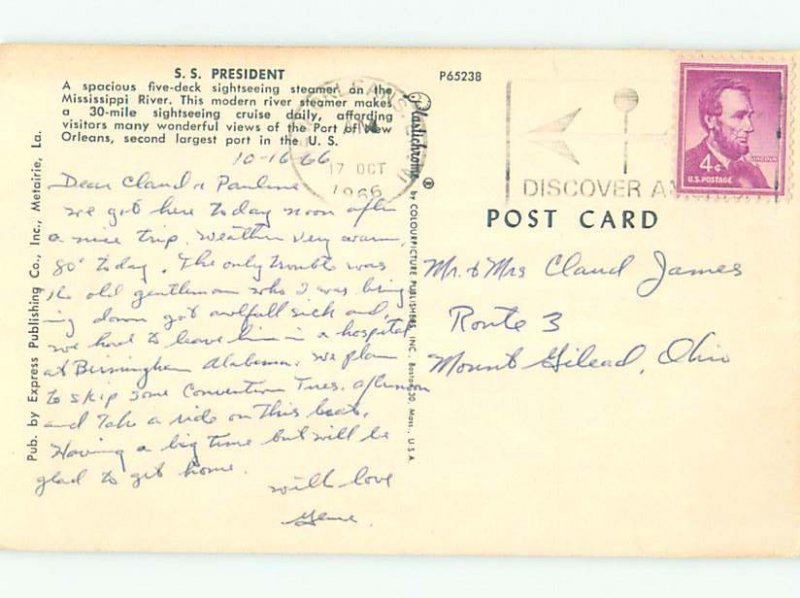 S. S. PRESIDENT
A spacious five-deck sightseeing steamer on the
Mississippi River. This modern river steamer makes
a 30-mile sightseeing cruise daily, affording
visitors many wonderful views of the Port of New
Orleans, second largest port in the U. S.
10-16-66
Dear Claud & Pauline
we got here today noon after
a nice trip. Weather very warm,
80° today. The only trouble was
the old gentleman who I was bring
ing down got awfull sick and,
we had to leave him in a hospital
at Birmingham Alabama. We plan
to skip some Convention Tues. afternoon
and take a ride on this boat.
Having a big time but will be
glad to get home.
with love
Gene.
Pub. by Express Publishing Co., Inc., Metairie, La.
Plastichrome ® by COLOURPICTURE PUBLISHERS, INC., Boston 30, Mass., U.S.A.
P65238
17 OCT
1966
DISCOVER
4¢
LINCOLN
U.S. POSTAGE
POST CARD
Mr. & Mrs Claud James
Route 3
Mount Gilead, Ohio